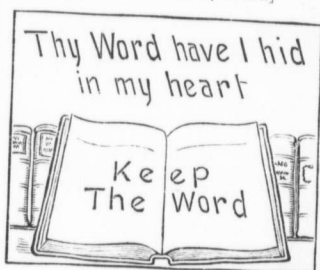 Thy Word have I hid
in my heart
Keep
The Word